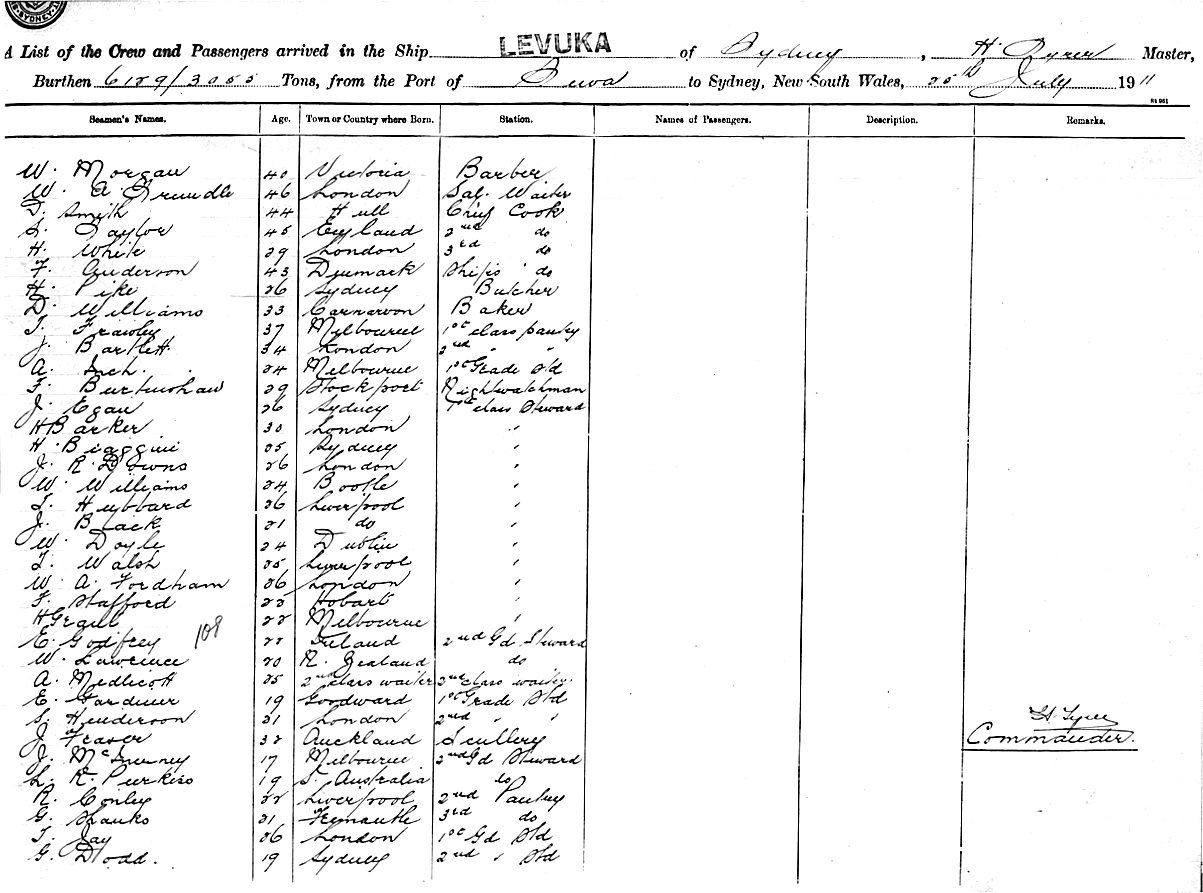 SYDNEY
A List of the Crew and Passengers arrived in the Ship LEVUKA of Sydney, H. Master,
Burthen 6129/3055 Tons, from the Port of Suva to Sydney, New South Wales, 25th July 1911
Seamen's Names. Age. Town or Country where Born. Station. Names of Passengers. Description. Remarks.
W. Morgan 40 Victoria Barber
W. A. Grundle 46 London Sal. Waiter
D. Smith 44 Hull Chief Cook
S. Taylor 45 England 2nd do
H. White 29 London 3rd do
F. Anderson 43 Denmark Ship's do
H. Pike 26 Sydney Butcher
D. Williams 33 Carnarvon Baker
T. Frawley 37 Melbourne 1st class pantry
J. Bartlett 34 London 2nd " "
A. Inch. 24 Melbourne 1st Grade Std
F. Burtinshaw 29 Stockport Nightwatchman
J. Egan 26 Sydney 1st class Steward
H Barker 30 London "
H. Biaggini 25 Sydney "
J. R. Downs 26 London "
W. Williams 24 Bootle "
T. Hubbard 26 Liverpool "
J. Black 21 do "
W. Doyle 24 Dublin "
T. Walsh 25 Liverpool "
W. A. Fordham 26 London "
F. Stafford 22 Hobart "
H 22 Melbourne "
E. Godfrey 108 22 Ireland 2nd Gd Steward
W. Lawrence 20 N. Zealand do
A. Medlicott 25 2nd class waiter 2nd class waiter.
E. Gardiner 19 Goodward 1st Grade Std
S. Henderson 21 London 2nd " "
J. Fraser 32 Auckland Scullery
H. Tyrer
Commander.
J. McInerney 17 Melbourne 2nd Gd Steward
L. R. Purkiss 19 S. Australia do
R. Conley 22 Liverpool 2nd Pantry
G. Shanks 21 Fremantle 3rd do
T. Jay 26 London 1st Gd Std
G. Dodd. 19 Sydney 2nd " Std